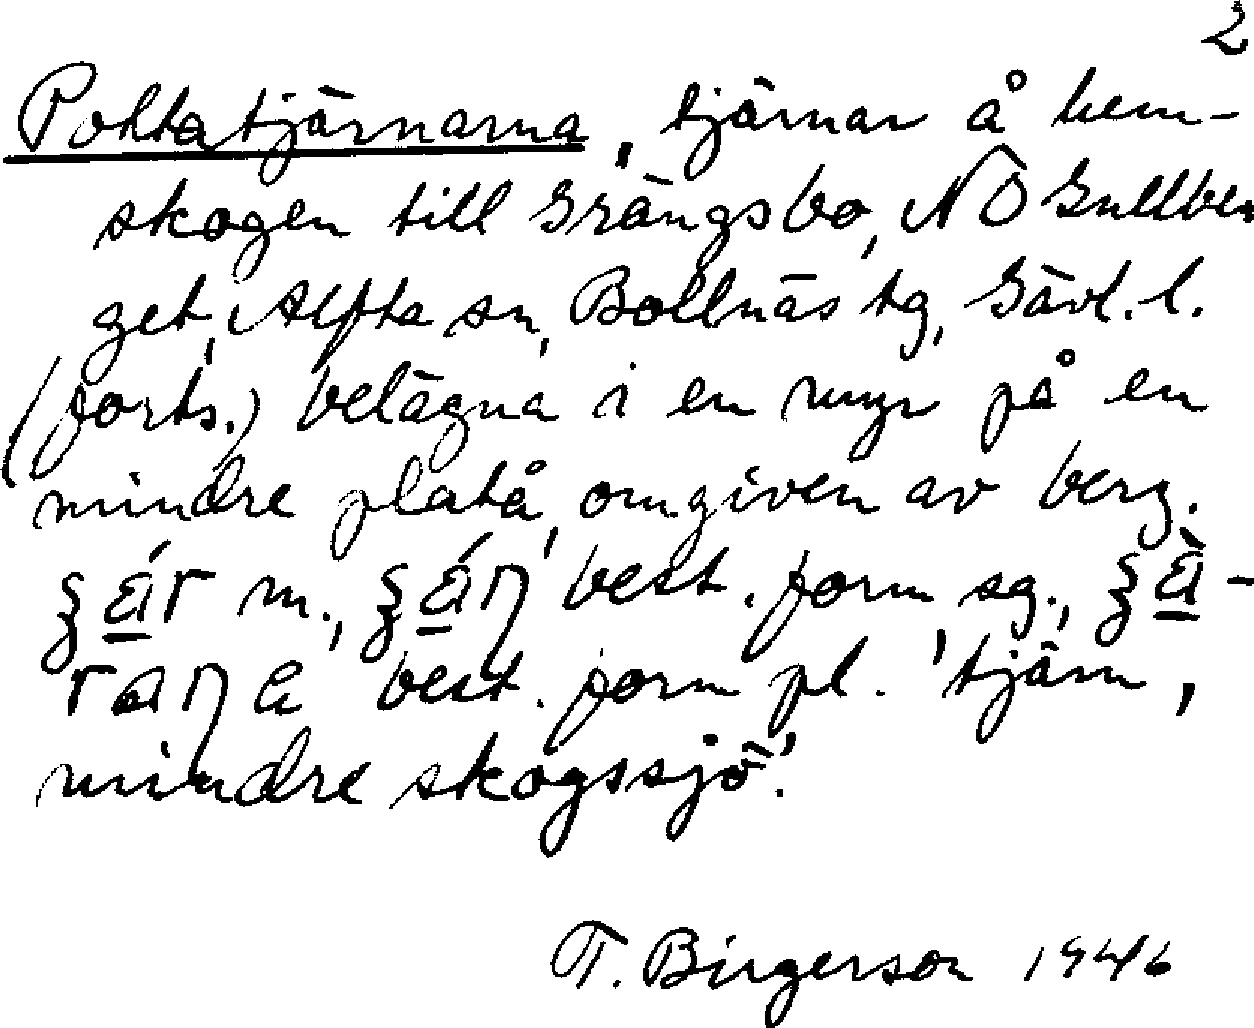 2
Pohtatjärnarna, tjärnar å hem-
skogen till Grängsbo, NO Gullber
get, Alfta sn, Bollnäs tg, Gävl. l.
(forts.) belägna i en myr på en
mindre platå, omgiven av berg.
m., best. form sg.,
best. form pl. 'tjärn,
mindre skogssjö'.
T. Birgerson 1946